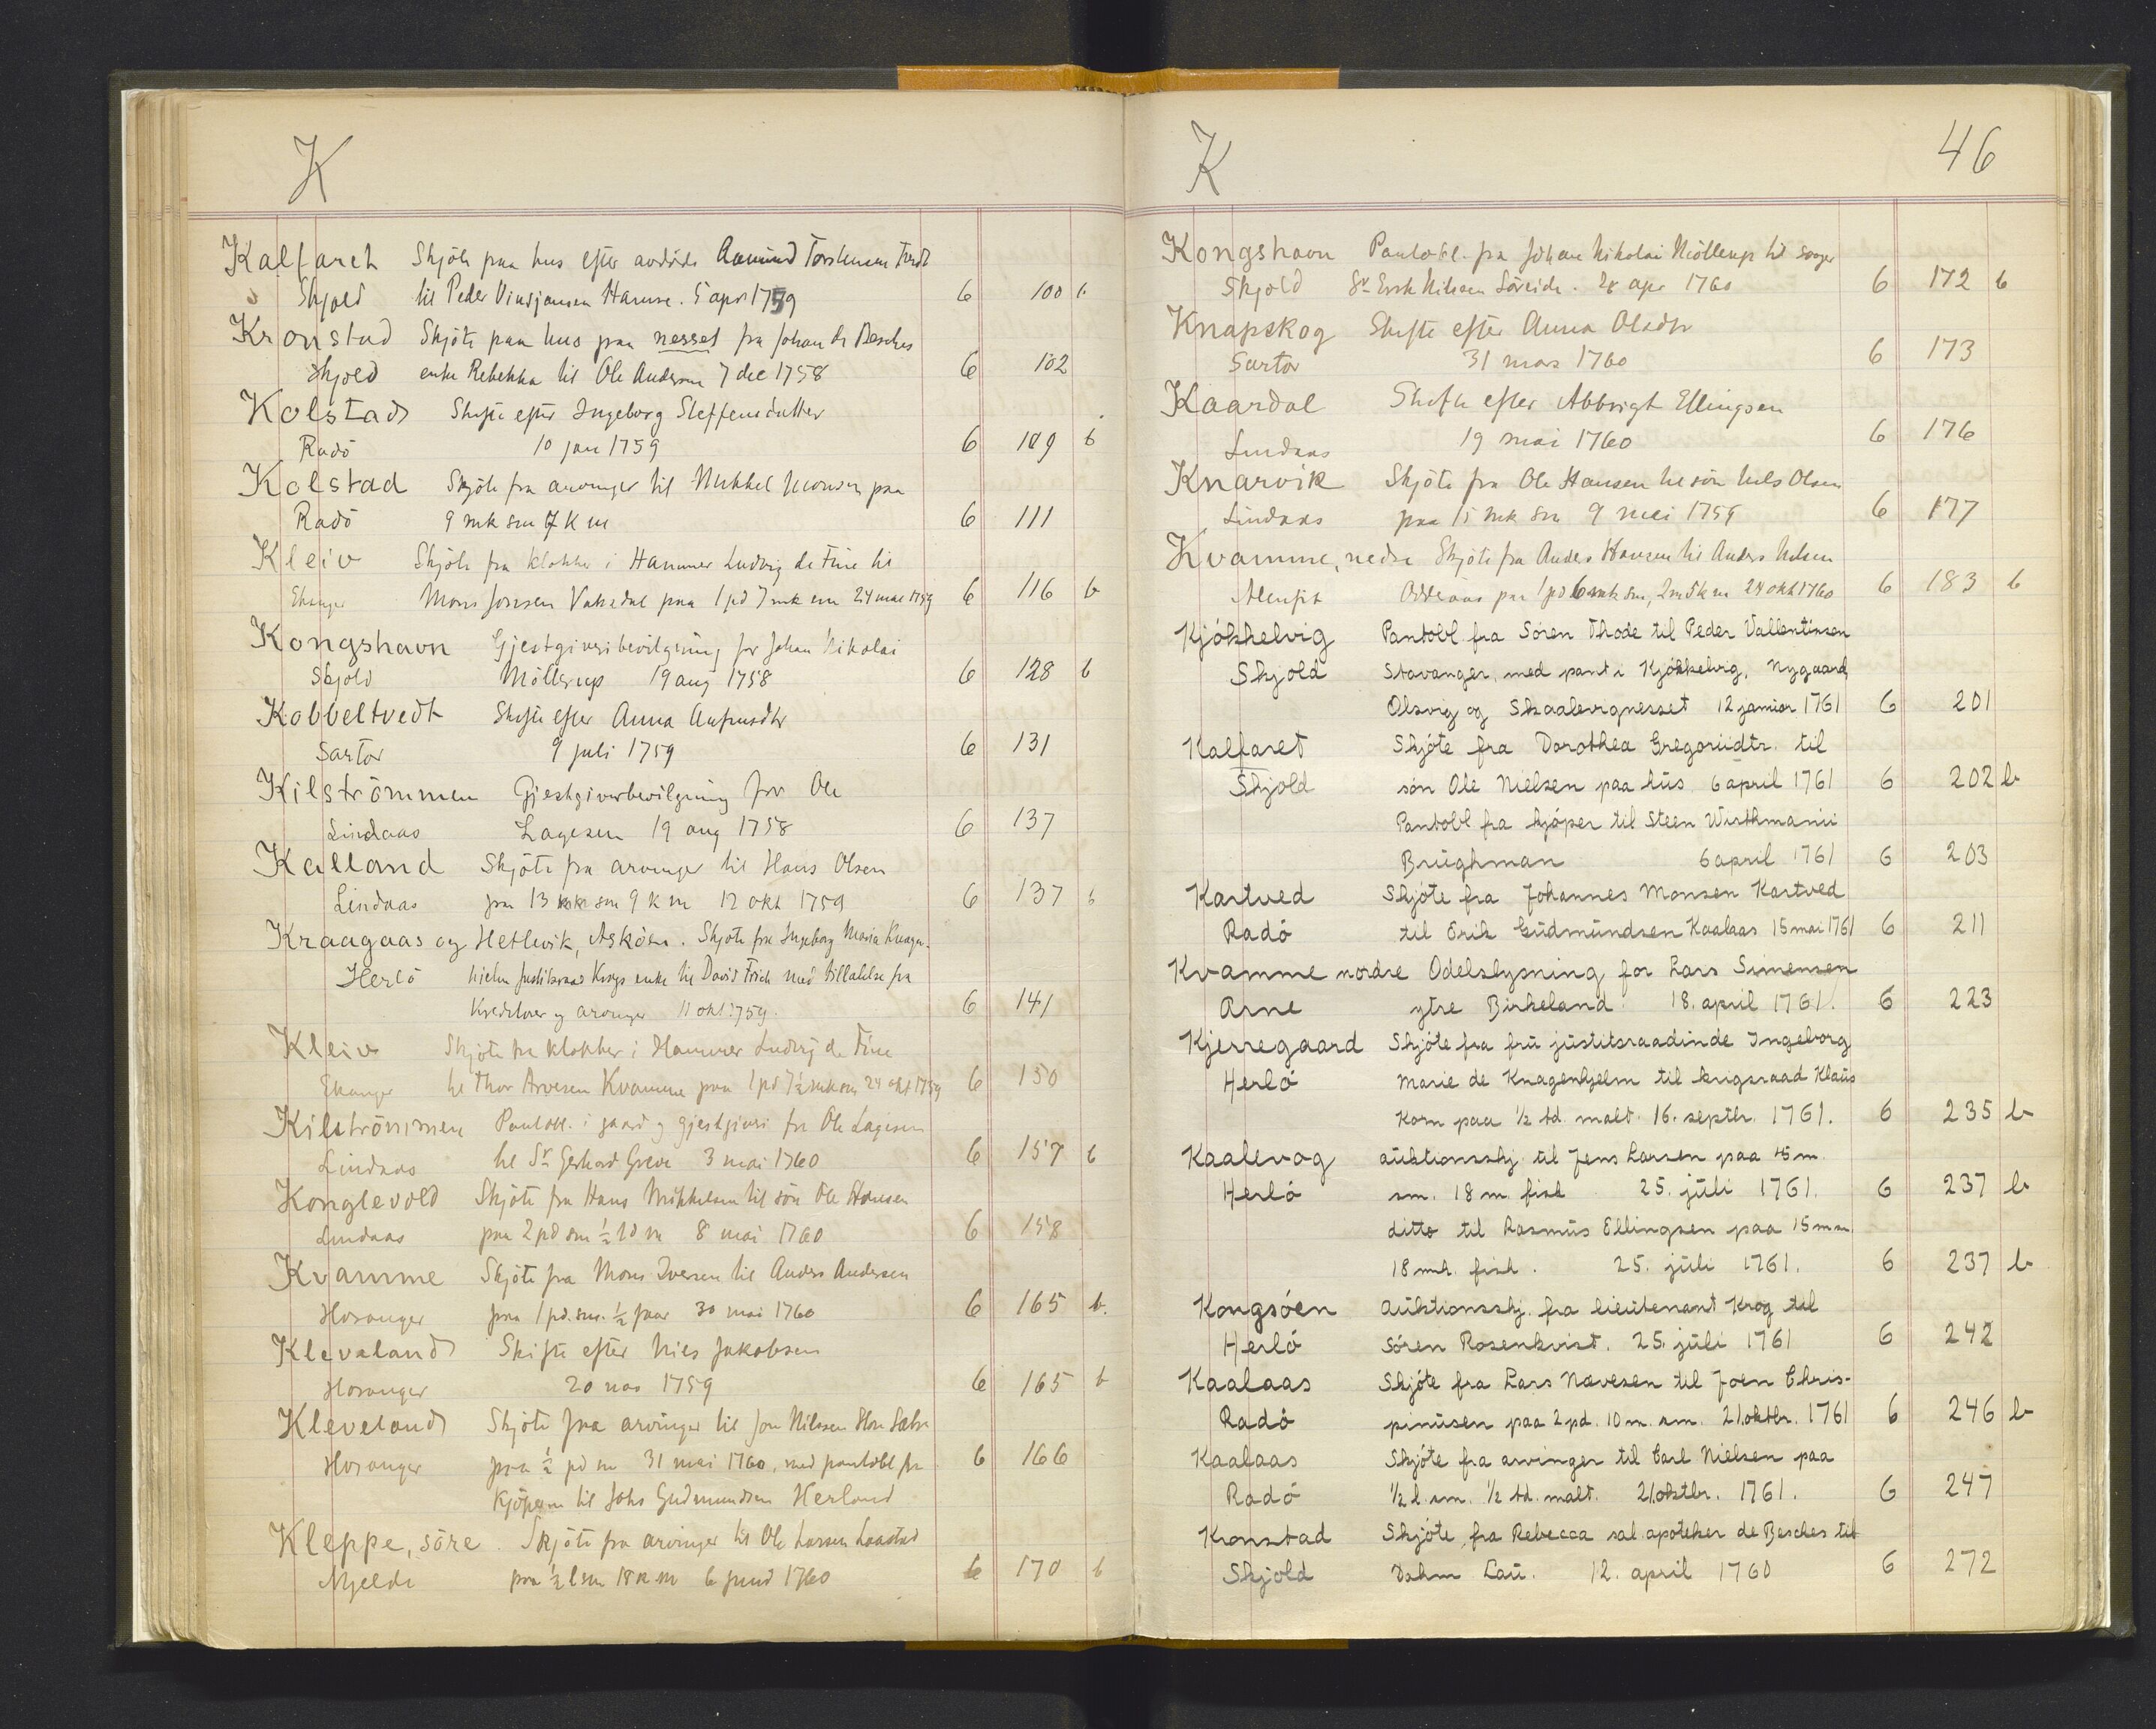 K
Kalfaret Skjöte paa hus efter avdöde Aamund Torstensen Tvedt
Skjold til Peder Vindjansen Hamre. 5 apr 1759 6 100 b
Kronstad Skjöte paa hus paa nesset fra Johan de Besches
Skjold enke Rebekka til Ole Andersen 7 dec 1758 6 102
Kolstad Skifte efter Ingeborg Steffensdatter
Radö 10 jan 1759 6 109 b
Kolstad Skjöte fra arvinger til Mikkel Monsen paa
Radö 9 mk sm 7 K m 6 111
Kleiv Skjöte fra klokker i Hammer Ludvig de Fine til
Ekanger Mons Jonsen Vaksdal paa 1 pd 7 mk sm 24 mai 1759 6 116 b
Kongshavn Gjestgiveribevilgning for Johan Nikolai
Skjold Möllerup 19 aug 1758 6 128 b
Kobbeltvedt Skifte efter Anna Anfinsdtr
Sartor 9 juli 1759 6 131
Kilströmmen Gjestgiverbevilgning for Ole
Lindaas Lagesen 19 aug 1758 6 137
Kalland Skjöte fra arvinger til Hans Olsen
Lindaas paa 13 mk sm 9 k m 12 okt 1759 6 137 b
Kraagaas og Hetlevik, Asköen. Skjöte fra Ingeborg Maria Knagen-
Herlö hjelm justitsraad Krogs enke til David Frich med tilladelse fra
Kreditorer og arvinger 11 okt 1759. 6 141
Kleiv Skjöte fra klokker i Hammer Ludvig de Fine
Ekanger til Thor Arvesen Kvamme paa 1 pd 7½ mk sm 24 okt 1759 6 150
Kilströmmen Pantobl. i gaard og gjestgiveri fra Ole Lagesen
Lindaas til Sr Gerhard Greve 3 mai 1760 6 157 b
Konglevold Skjöte fra Hans Mikkelsen til sön Ole Hansen
Lindaas paa 2 pd sm ½ td m 8 mai 1760 6 158
Kvamme Skjöte fra Mons Iversen til Anders Andersen
Hosanger paa 1 pd. sm. ½ faar 30 mai 1760 6 165 b.
Klevaland Skifte efter Nils Jakobsen
Hosanger 20 nov 1759 6 165 b
Kleveland Skjöte fra arvinger til Jon Nilssen
Hosanger paa ½ pd sm 31 mai 1760, med pantobl fra 6 166
Kjöperen til Johs Gudmundsen Herland
Kleppe, söre. Skjöte fra arvinger til Ole Larssen
Mjelde paa ½ l sm 18 k m 6 juni 1760 6 170 b
K 46
Kongshavn Pantobl. fra Johan Nikolai Möllerup til
Skjold Sr Erik Nilssen Söreide. 28 apr 1760 6 172 b
Knapskog Skifte efter Anna Olsdtr
Sartor 31 mars 1760 6 173
Kaardal Skifte efter Abbrigt Ellingsen
Lindaas 19 mai 1760 6 176
Knarvik Skjöte fra Ole Hansen til sön Nils Olsen
Lindaas paa 15 mk sm 9 mai 1759 6 177
Kvamme, nedre Skjöte fra Anders Hansen til Anders Nilsen
Alenfit Odderaas paa 1 pd 6 mk sm, 2 m 5 k m 24 okt 1760 6 183 b
Kjökkelvig Pantobl fra Sören Thode til Peder Vallentinsen
Skjold Stavanger, med pant i Kjökkelvig, Nygaard,
Olsvig og Skaalevignesset 12 januar 1761 6 201
Kalfaret Skjöte fra Dorothea Gregoriidtr. til
Skjold sön Ole Nielsen paa hus. 6 april 1761 6 202 b
Pantobl fra kjöper til Steen Wirthmann
Brughman 6 april 1761 6 203
Kartved Skjöte fra Johannes Monsen Kartved
Radö til Erik Gudmundsen Kaalaas 15 mai 1761 6 211
Kvamme nordre Odelslysning for Lars Simensen
Arne ytre Birkeland. 18. april 1761. 6 223
Kjerregaard Skjöte fra fru justitsraadinde Ingeborg
Herlö Marie de Knagenhjelm til krigsraad Klaus
Korn paa ½ td. malt. 16. septbr. 1761. 6 235 b
Kaalevog auktionsskj. til Jens Larsen paa 15 m.
Herlö sm. 18 m. fisk 25. juli 1761. 6 237 b
ditto til Rasmus Ellingsen paa 15 m sm
18 mk. fisk. 25. juli 1761. 6 237 b
Kongsöen Auktionsskj. fra lieutenant Krog til
Herlö Sören Rosenkvist. 25. juli 1761 6 242
Kaalaas Skjöte fra Lars Nævesen til Joen Chris-
Radö pinusen paa 2 pd. 10 m. sm. 21. oktbr. 1761 6 246 b
Kaalaas Skjöte fra arvinger til Carl Nielsen paa
Radö ½ l. sm. ½ td. malt. 21. oktbr. 1761. 6 247
Kronstad Skjöte fra Rebecca sal. apoteker de Besches til
Skjold Dahm Lau. 12. april 1760 6 272